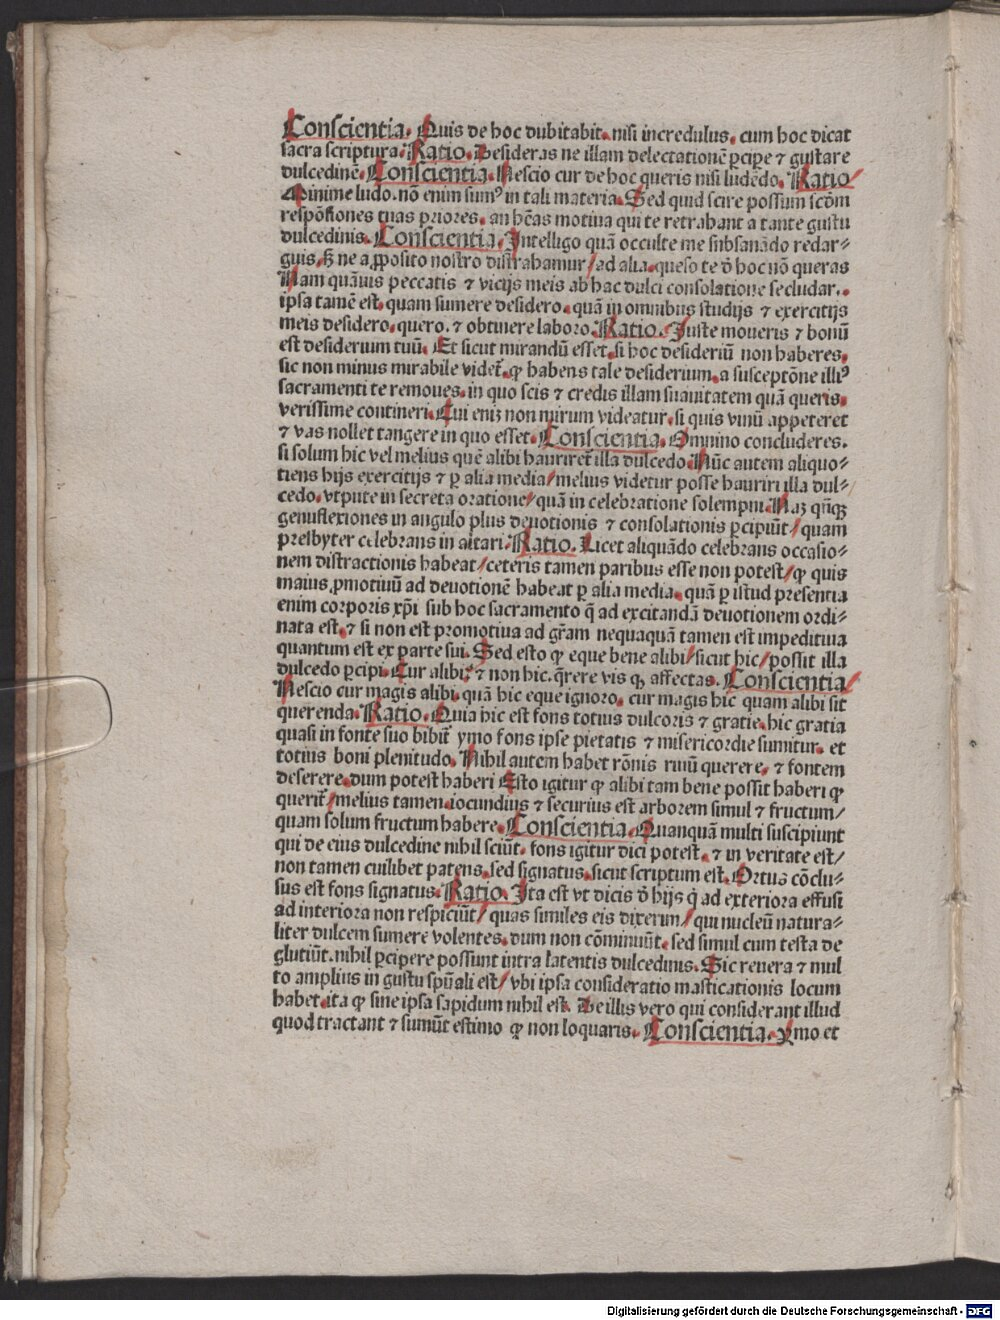 Conscientia. Quis de hoc dubitabit. nisi incredulus. cum hoc dicat
sacra scriptura. Ratio. Desideras ne illam delectationē ꝑcipe ⁊ gustare
dulcedinē. Conscientia. Nescio cur de hoc queris nisi ludēdo. Ratio/
Minime ludo. nō enim sumꝰ in tali materia. Sed quid scire possum scōm
respōsiones tuas priores. an hēas motiua qui te retrahant a tante gustu
dulcedinis. Conscientia. Intelligo quā occulte me subsanādo redar⸗
guis. sꝫ ne a ꝓposito nostro distrahamur/ ad alia. queso te ō hoc nō queras
Nam quāuis peccatis ⁊ vicijs meis ab hac dulci consolatione secludar..
ipsa tamē est. quam sumere desidero. quā in omnibus studijs ⁊ exercitijs
meis desidero. quero. ⁊ obtinere laboro. Ratio. Juste moueris ⁊ bonū
est desiderium tuū. Et sicut mirandū esset. si hoc desideriū non haberes.
sic non minus mirabile videt̄. ꝙ habens tale desiderium. a susceptōne illiꝰ
sacramenti te remoues. in quo scis ⁊ credis illam suauitatem quā queris.
verissime contineri. Cui enīꝫ non mirum videatur. si quis vinū appeteret
⁊ vas nollet tangere in quo esset. Conscientia. Omnino concluderes.
si solum hic vel melius quē alibi hauriret̄ illa dulcedo. Nūc autem aliquo⸗
tiens hijs exercitijs ⁊ ꝑ alia media/ melius videtur posse hauriri illa dul⸗
cedo. vtpute in secreta oratione/ quā in celebratione solempni. Naꝫ qn̄qꝫ
genuflexiones in angulo plus deuotionis ⁊ consolationis ꝑcipiūt/ quam
presbyter celebrans in altari. Ratio. Licet aliquādo celebrans occasio⸗
nem distractionis habeat/ ceteris tamen paribus esse non potest/ ꝙ quis
maius ꝓmotiuū ad deuotionē habeat ꝑ alia media. quā ꝑ istud presentia
enim corporis xp̄i sub hoc sacramento q̄ ad excitandā deuotionem ordi⸗
nata est. ⁊ si non est promotiua ad gr̄am nequaquā tamen est impeditiua
quantum est ex parte sui. Sed esto ꝙ eque bene alibi/ sicut hic/ possit illa
dulcedo ꝑcipi. Cur alibi. ⁊ non hic. q̄rere vis qꝫ affectas. Conscientia/
Nescio cur magis alibi. quā hic eque ignoro. cur magis hic quam alibi sit
querenda. Ratio. Quia hic est fons totius dulcoris ⁊ gratie. hic gratia
quasi in fonte suo bibit̄ ymo fons ipse pietatis ⁊ misericordie sumitur. et
totius boni plenitudo. Nihil autem habet rōnis riuū querere. ⁊ fontem
deserere. dum potest haberi Esto igitur ꝙ alibi tam bene possit haberi ꝙ
querit̄/ melius tamen. iocundius ⁊ securius est arborem simul ⁊ fructum/
quam solum fructum habere. Conscientia. Quanquā multi suscipiunt
qui de eius dulcedine nihil sciūt. fons igitur dici potest. ⁊ in veritate est/
non tamen cuilibet patens. sed signatus. sicut scriptum est. Ortus cōclu⸗
sus est fons signatus. Ratio. Ita est vt dicis ō hijs q̄ ad exteriora effusi
ad interiora non respiciūt/ quas similes eis dixerim/ qui nucleū natura⸗
liter dulcem sumere volentes. dum non cōminuūt. sed simul cum testa de
glutiūt. nihil ꝑcipere possunt intra latentis dulcedinis. Sic reuera ⁊ mul
to amplius in gustu spūali est/ vbi ipsa consideratio masticationis locum
habet. ita ꝙ sine ipsa sapidum nihil est. De illis vero qui considerant illud
quod tractant ⁊ sumūt estimo ꝙ non loquaris. Conscientia. Ymo et
Digitalisierung gefördert durch die Deutsche Forschungsgemeinschaft - DFG